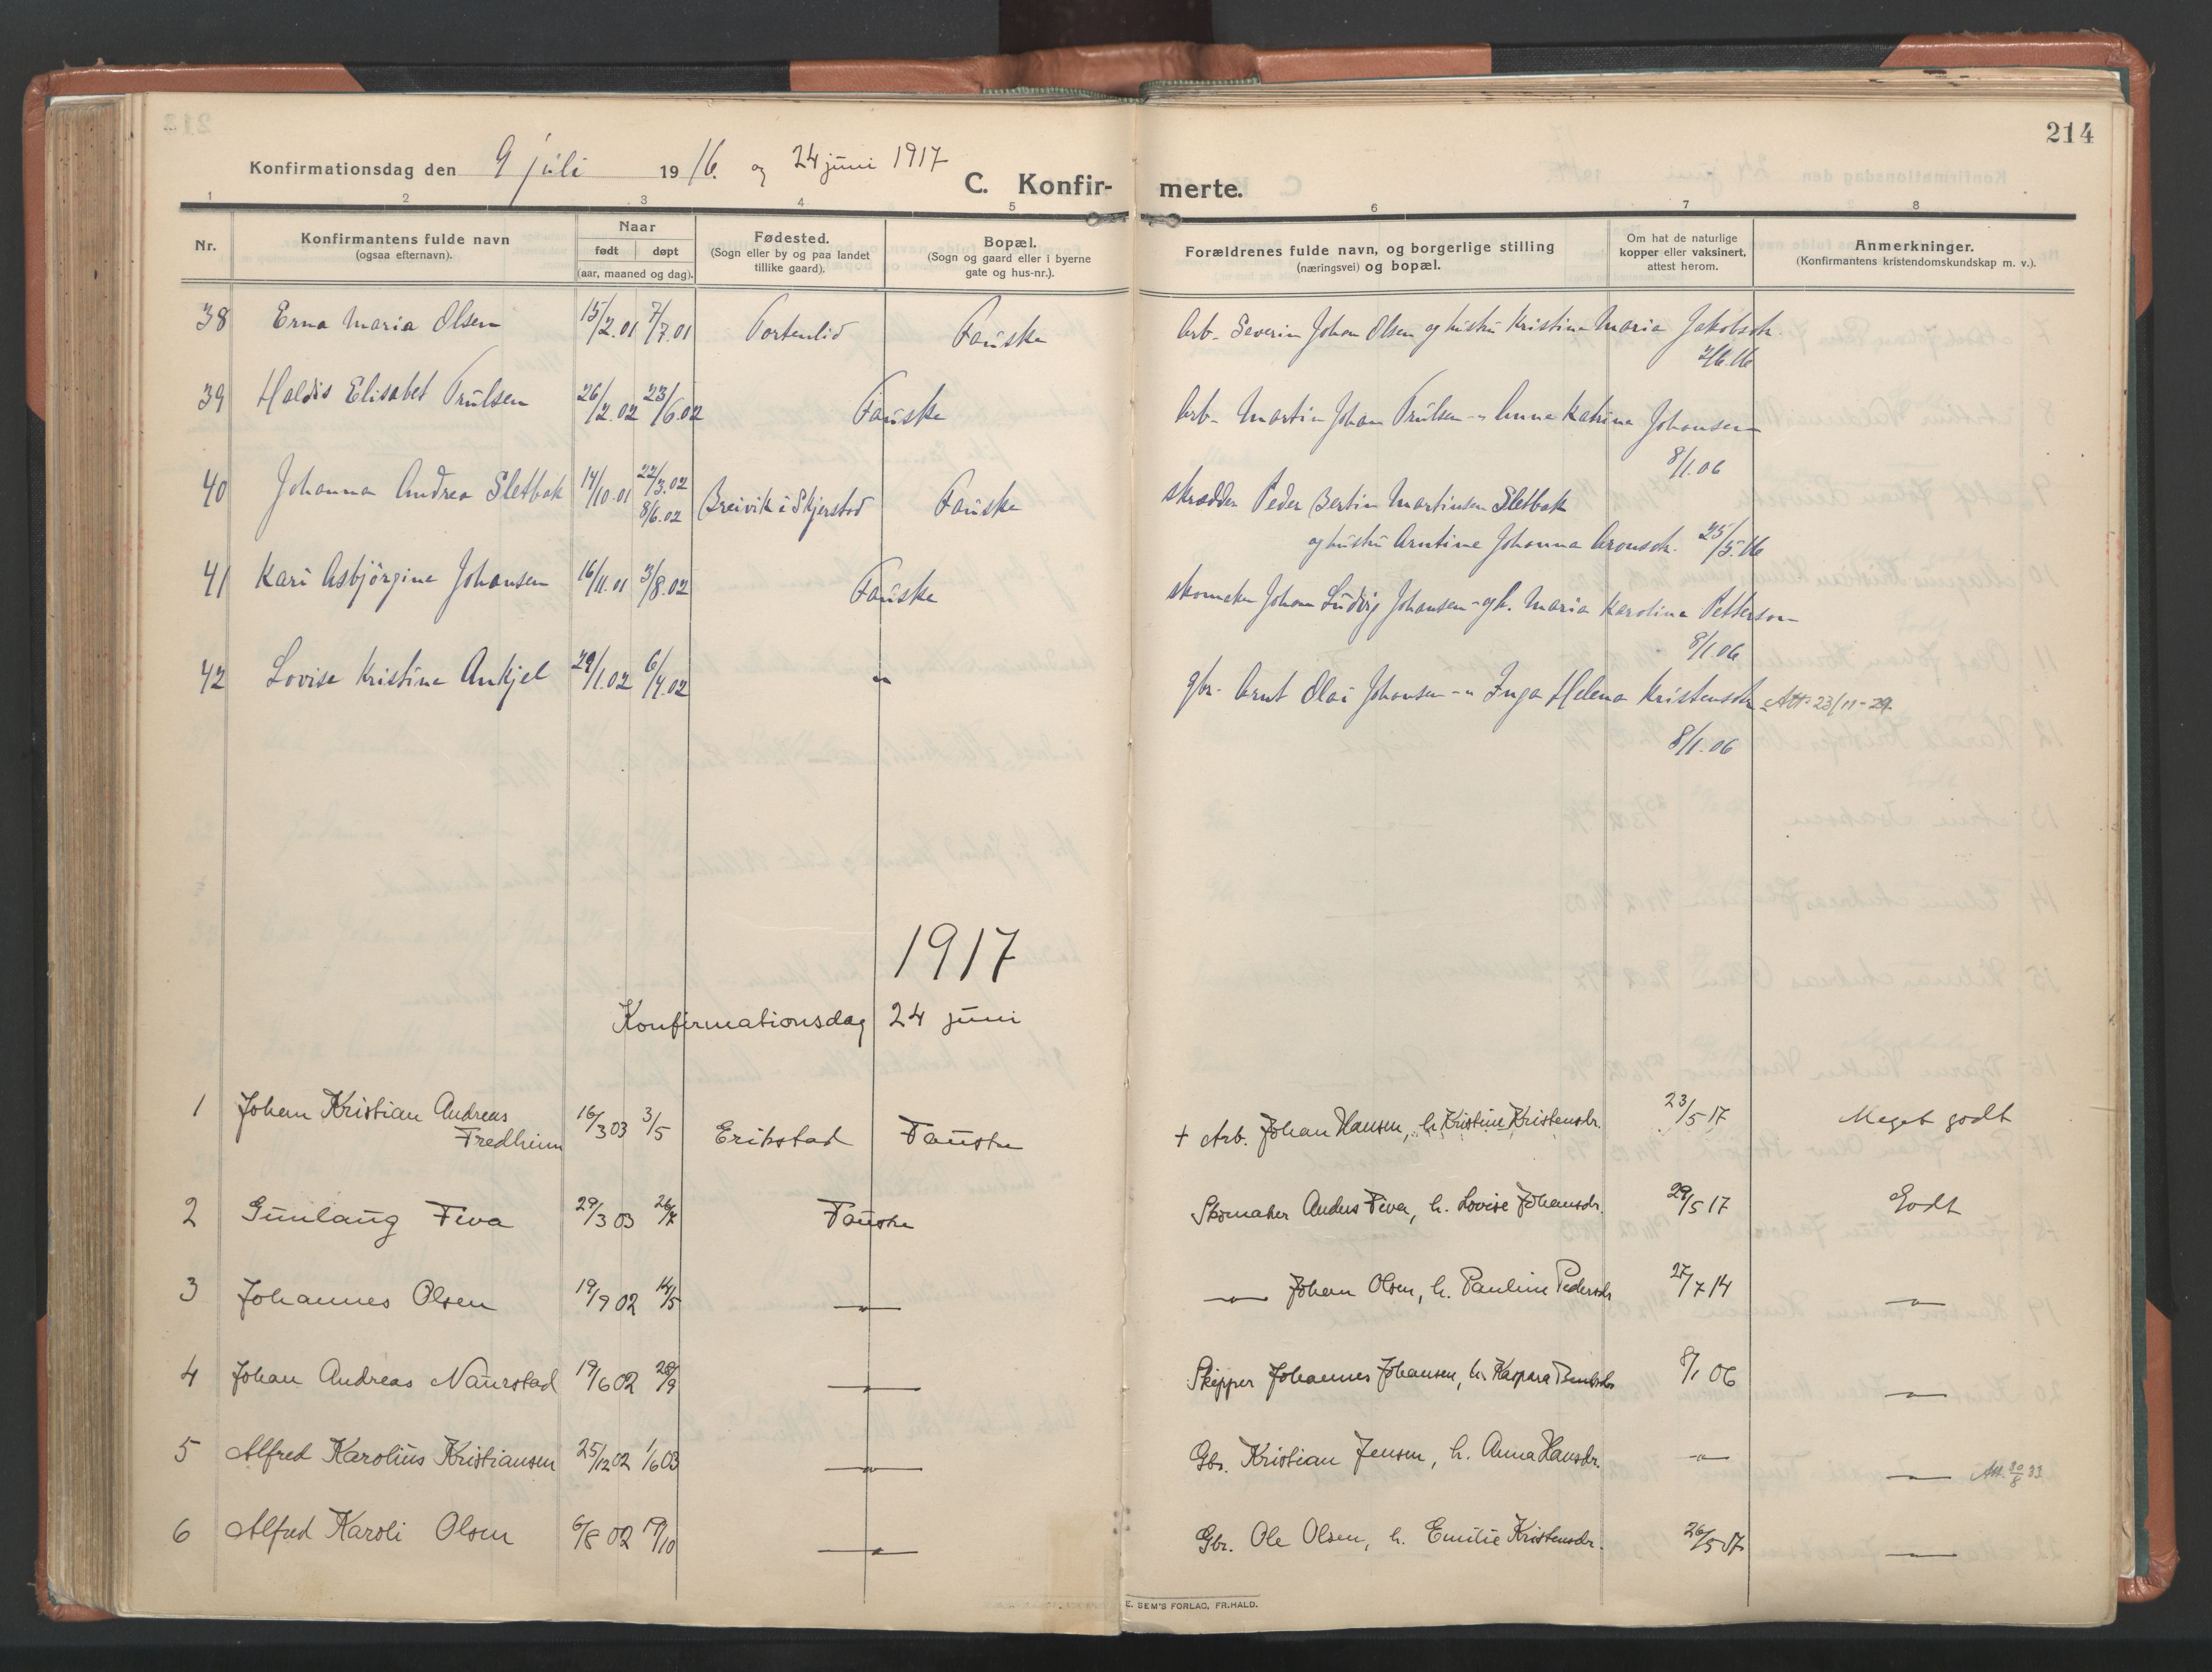 214
Konfirmationsdag den 9 juli 1916. og 24 juni 1917
C. Konfir- merte.
1 2 3 4 5 6 7 8
Nr.
Konfirmantens fulde navn
(ogsaa efternavn).
Naar
født døpt
(aar, maaned og dag).
Fødested.
(Sogn eller by og paa landet
tillike gaard).
Bopæl.
(Sogn og gaard eller i byerne
gate og hus-nr.).
Forældrenes fulde navn, og borgerlige stilling
(næringsvei) og bopæl.
Om hat de naturlige
kopper eller vaksinert,
attest herom.
Anmerkninger.
(Konfirmantens kristendomskundskap m. v.).
38 Erna Maria Olsen 15/2.01 7/7.01 Tortenlid Fauske Arb. Severin Johan Olsen og hustru Kristine Maria Jakobsdr.
2/6.16
39 Haldis Elisabet Trulsen 26/2.02 23/6.02 Fauske Arb. Martin Johan Trulsen - " Anna Katrina Johansen
8/1.06
40 Johanna Andrea Sletbak 14/10.01 22/3.02 8/6.02 Breivik i Skjerstad Fauske skrædder Peder Bertin Martinsen Sletbak
og hustru Arntine Johanna Aronsdr. 25/5.16
41 Kari Asbjörgine Johansen 16/11.01 3/8.02 Fauske skomaker Johan Ludvig Johansen - og h. Maria Karolina Petterson
8/1.06
42 Lovise Kristine Ankjel 29/1.02 6/4.02 " gbr. Arnt Olai Johansen - " Inga Helena Kristensdtr. Att. 23/11-29
8/1.06
1917
Konfirmationsdag 24 juni
1 Johan Kristian Andreas
Fredheim 16/3 03 3/5 Erikstad Fauske + Arb. Johan Hansen, h. Kristine Kristensdr. 23/5 17 Meget godt
2 Gunlaug Feva 29/3 03 26/7 Fauske Skomaker Anders Feva, h. Lovise Johansdr. 29/5 17 Godt
3 Johannes Olsen 19/9 02 14/5 — " — — " — Johan Olsen, h. Pauline Pedersdr 27/7 14 — " —
4 Johan Andreas Naurstad 19/6 02 28/9 — " — Skipper Johannes Johansen, h. Kaspara 8/1 06 — " —
5 Alfred Karolius Kristiansen 25/12 02 1/6 03 — " — Gbr. Kristian Jensen, h. Anna Hansdr. — " — — " — Att. 30/8 33
6 Alfred Karoli Olsen 6/8 02 19/10 — " — Gbr. Ole Olsen, h. Emilie Kristensdr. 26/5 17 — " —
E. SEM'S FORLAG, FR.HALD.